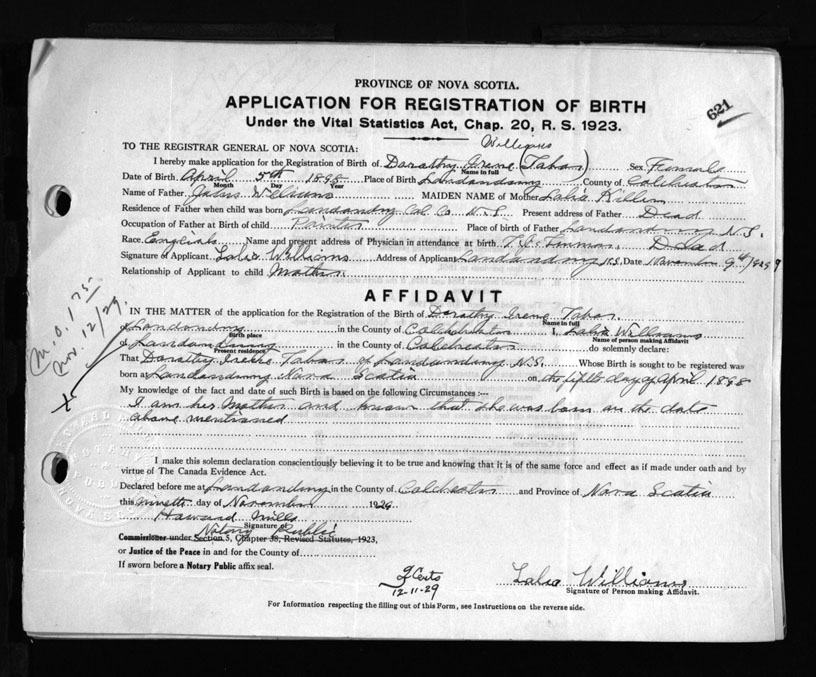 PROVINCE OF NOVA SCOTIA.
APPLICATION FOR REGISTRATION OF BIRTH
621
Under the Vital Statistics Act, Chap. 20, R. S. 1923.
TO THE REGISTRAR GENERAL OF NOVA SCOTIA:
Williams
I hereby make application for the Registration of Birth of Dorothy Irene (Tabor) Sex Female
Name in full
Date of Birth April 5th 1898 Place of Birth Londonderry County of Colchester
Month Day Year
Name of Father Williams MAIDEN NAME of Mother Lalia Killen
Residence of Father when child was born Londonderry Col. Co. N.S. Present address of Father Dead
Occupation of Father at Birth of child Painter Place of birth of Father Londonderry N.S.
Race English Name and present address of Physician in attendance at birth Dead
Signature of Applicant Lalia Williams Address of Applicant Londonderry N.S. Date November 9th 1929
Relationship of Applicant to child Mother.
M.O. 1.75
Nov. 12/29.
AFFIDAVIT
IN THE MATTER of the application for the Registration of the Birth of Dorothy Irene Tabor.
Name in full
of Londonderry in the County of Colchester I, Lalia Williams
Birth place Name of person making Affidavit
of Londonderry in the County of Colchester do solemnly declare:
Present residence
That Dorothy Irene Tabor of Londonderry N.S. Whose Birth is sought to be registered was
born at Londonderry Nova Scotia on the fifth day of April 1898
My knowledge of the fact and date of such Birth is based on the following Circumstances :--
I am her Mother and know that she was born on the date
above mentioned
I make this solemn declaration conscientiously believing it to be true and knowing that it is of the same force and effect as if made under oath and by
virtue of The Canada Evidence Act.
Declared before me at Londonderry in the County of Colchester and Province of Nova Scotia
this Nineth day of November 1929
Howard Mills
Signature of
Notary Public
Commissioner under Section 5, Chapter 38, Revised Statutes, 1923,
or Justice of the Peace in and for the County of
If sworn before a Notary Public affix seal.
2 Certs
12-11-29
Lalia Williams
Signature of Person making Affidavit.
For Information respecting the filling out of this Form, see Instructions on the reverse side.